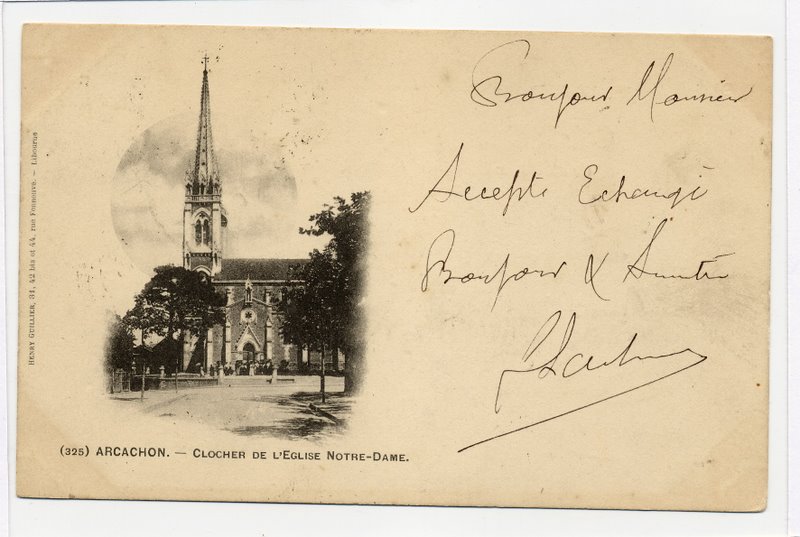 Bonjour Monsieur
Accepte Echange
Bonjour & Santé
HENRY GUILLIER, 31, 42 bis et 44, rue Fonneuve. — Libourne
(325) ARCACHON. — CLOCHER DE L'EGLISE NOTRE-DAME.